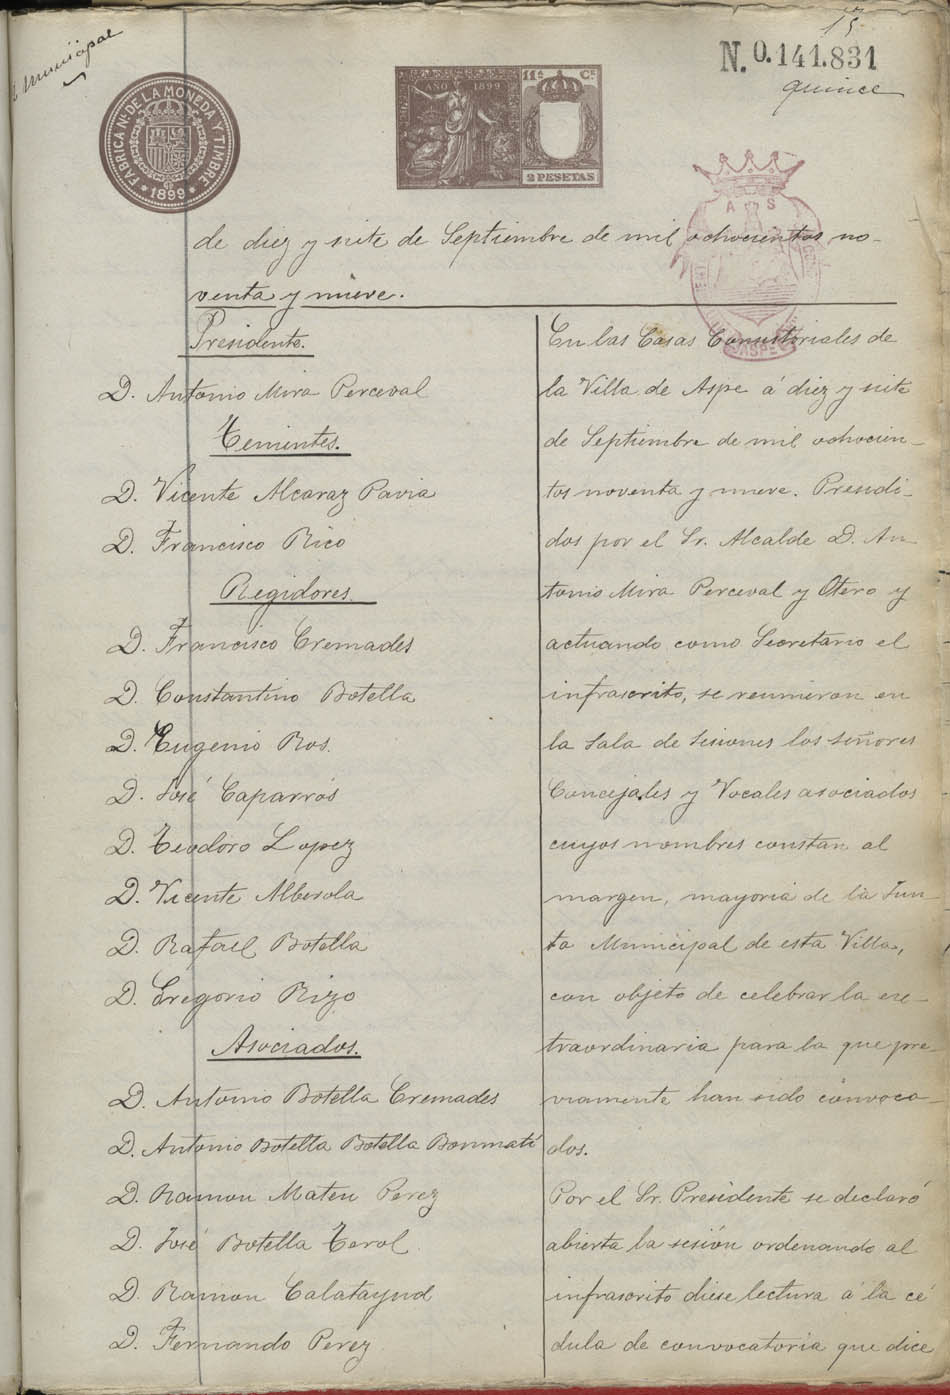 15
N. 0.141.831
quince
Municipal
FABRICA Nl. DE LA MONEDA Y TIMBRE
1899
AÑO 1899
11ª Cª
2 PESETAS
A S
ASPE
de diez y siete de Septiembre de mil ochocientos no-
venta y nueve.
Presidente.
D. Antonio Mira Perceval
Tenientes.
D. Vicente Alcaraz Pavia
D. Francisco Rico
Regidores.
D. Francisco Cremades
D. Constantino Botella
D. Eugenio Ros.
D. José Caparrós
D. Teodoro Lopez
D. Vicente Alberola
D. Rafael Botella
D. Gregorio Rizo
Asociados.
D. Antonio Botella Cremades
D. Antonio Botella Botella Bonmatí
D. Ramon Mateu Perez
D. José Botella Terol
D. Ramon Calatayud
D. Fernando Perez
En las Casas Consistoriales de
la Villa de Aspe á diez y siete
de Septiembre de mil ochocien-
tos noventa y nueve. Presidi-
dos por el Sr. Alcalde D. An-
tonio Mira Perceval y Otero y
actuando como Secretario el
infrascrito, se reunieron en
la Sala de Sesiones los señores
Concejales y Vocales asociados
cuyos nombres constan al
margen, mayoria de la Jun-
ta Municipal de esta Villa,
con objeto de celebrar la ex-
traordinaria para la que pre-
viamente han sido convoca-
dos.
Por el Sr. Presidente se declaró
abierta la sesión ordenando al
infrascrito diese lectura á la cé
dula de convocatoria que dice